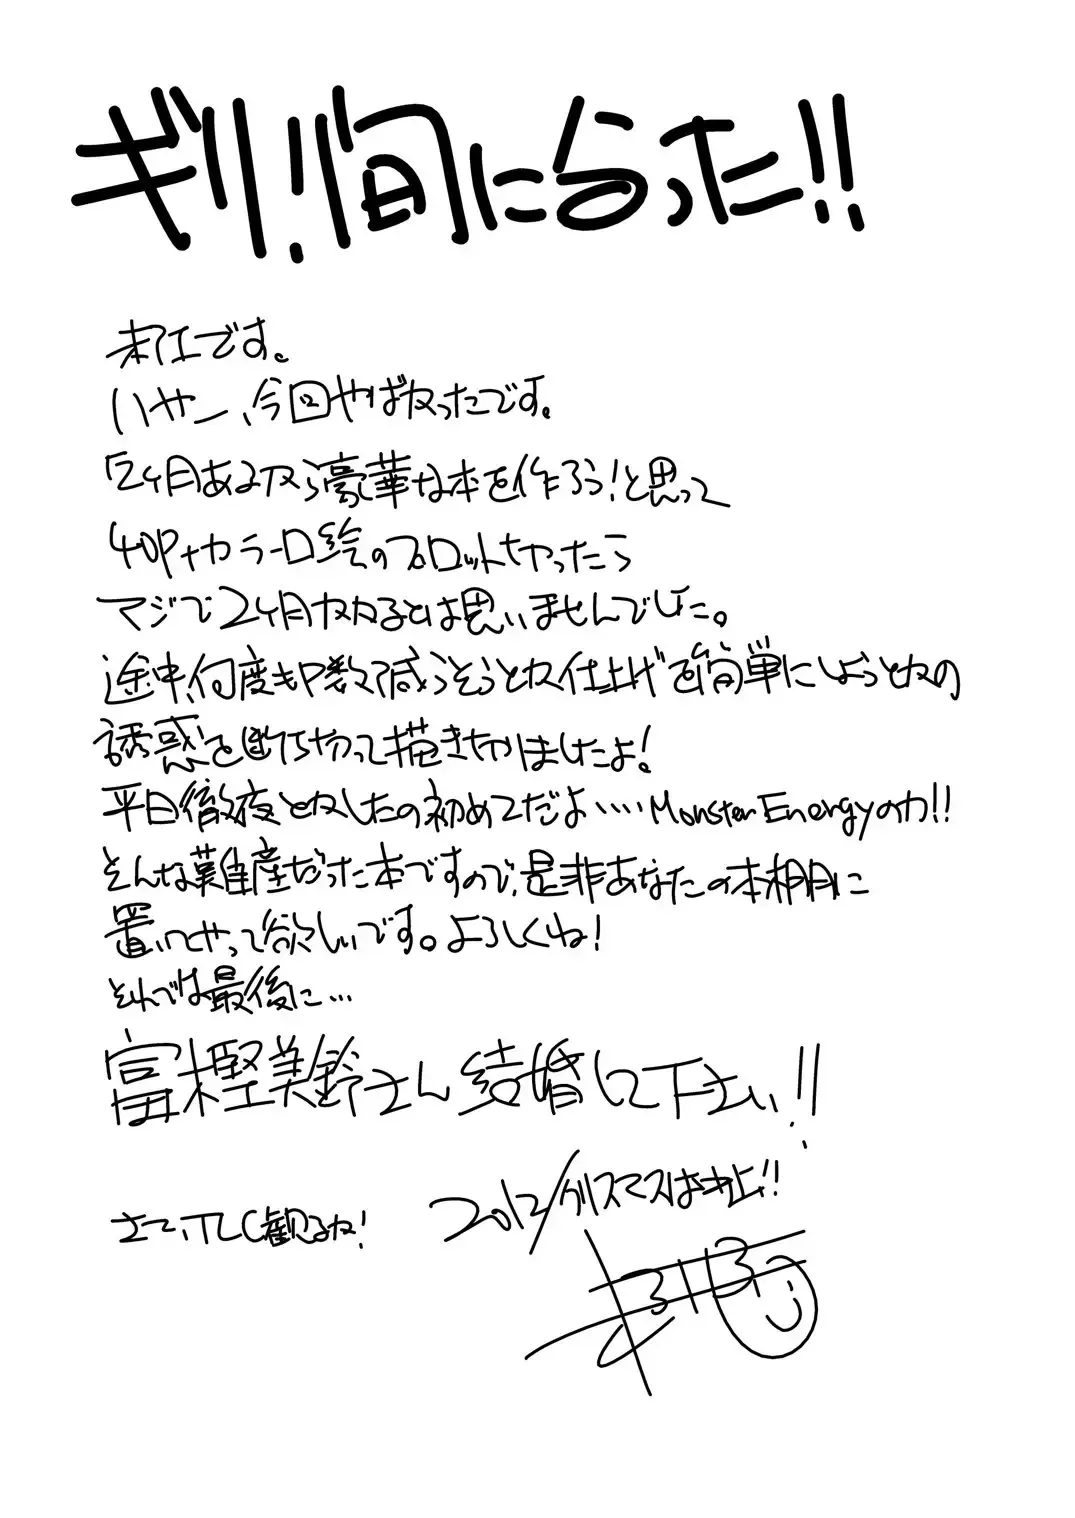 ギリ!間に合った!!
朱江です。
いやー、今回やばかったです。
「2ヶ月あるから豪華な本を作ろう!と思って
40P+カラー口絵のプロットやったら
マジで2ヶ月かかるとは思いませんでした。
途中、何度もP数減らそうとか仕上げを簡単にしようとかの
誘惑を断ち切って描ききりましたよ!
平日徹夜とかしたの初めてだよ……Monster Energyの力!!
そんな難産だった本ですので、是非あなたの本棚に
置いてやって欲しいです。よろしくね!
それでは最後に…
富樫美鈴さん結婚して下さい!!
2012/クリスマスは中止!!
さて、TLC観るか!